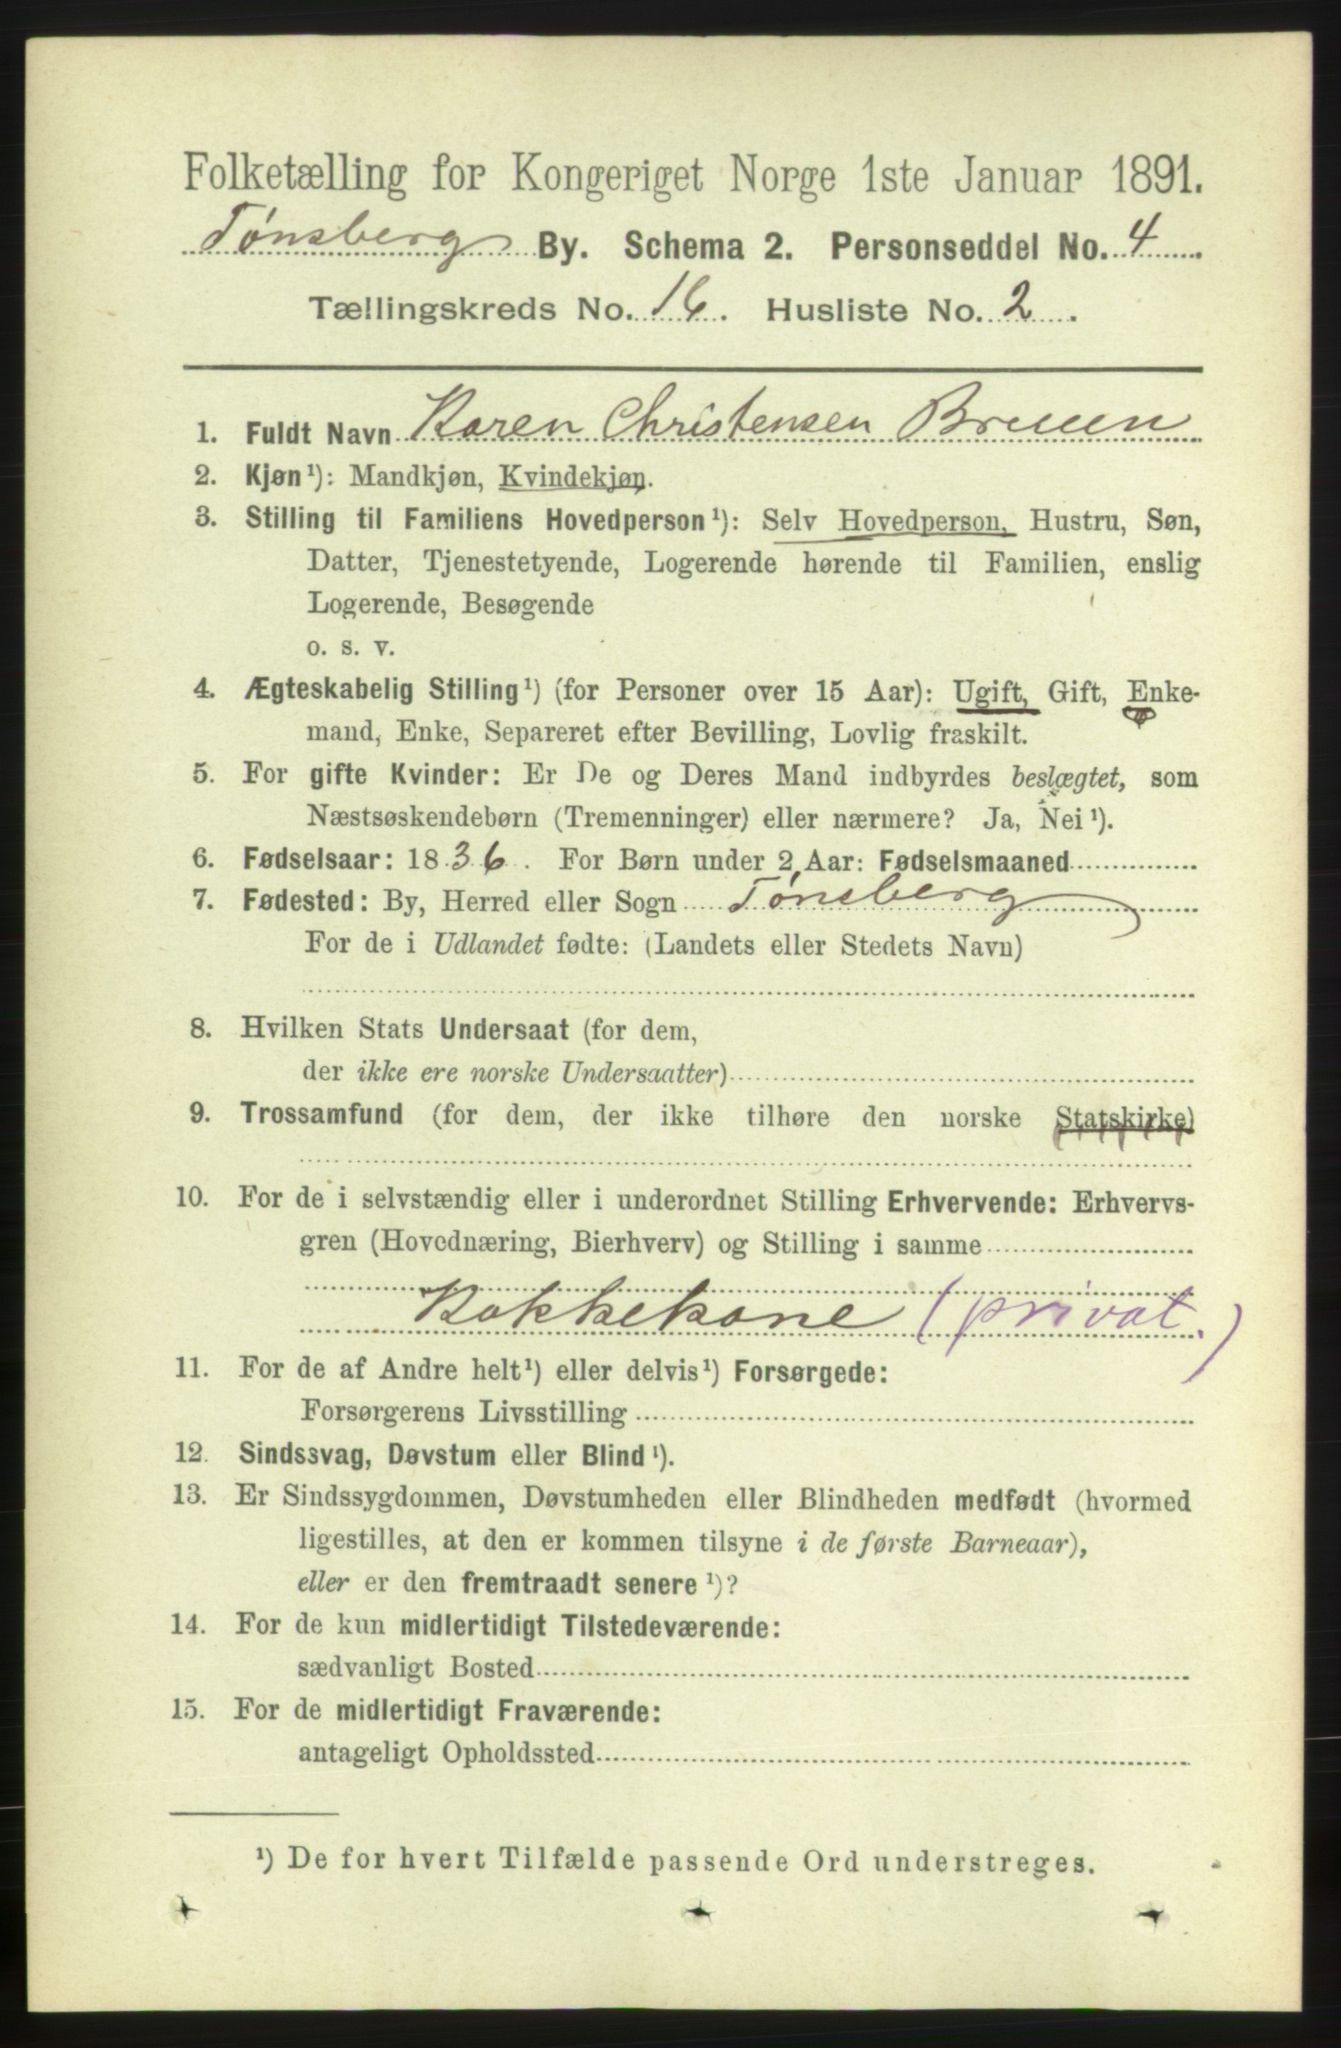 Folketælling for Kongeriget Norge 1ste Januar 1891.
Tønsberg By. Schema 2. Personseddel No. 4
Tællingskreds No. 16. Husliste No. 2.
1. Fuldt Navn Karen Christensen Bruun
2. Kjøn¹): Mandkjøn, Kvindekjøn.
3. Stilling til Familiens Hovedperson¹): Selv Hovedperson, Hustru, Søn,
Datter, Tjenestetyende, Logerende hørende til Familien, enslig
Logerende, Besøgende
o. s. v.
4. Ægteskabelig Stilling¹) (for Personer over 15 Aar): Ugift, Gift, Enke-
mand, Enke, Separeret efter Bevilling, Lovlig fraskilt.
5. For gifte Kvinder: Er De og Deres Mand indbyrdes beslægtet, som
Næstsøskendebørn (Tremenninger) eller nærmere? Ja, Nei¹).
6. Fødselsaar: 1836. For Børn under 2 Aar: Fødselsmaaned
7. Fødested: By, Herred eller Sogn Tønsberg
For de i Udlandet fødte: (Landets eller Stedets Navn)
8. Hvilken Stats Undersaat (for dem,
der ikke ere norske Undersaatter)
9. Trossamfund (for dem, der ikke tilhøre den norske Statskirke)
10. For de i selvstændig eller i underordnet Stilling Erhvervende: Erhvervs-
gren (Hovednæring, Bierhverv) og Stilling i samme
Kokkekone (privat.)
11. For de af Andre helt¹) eller delvis¹) Forsørgede:
Forsørgerens Livsstilling
12. Sindssvag, Døvstum eller Blind¹).
13. Er Sindssygdommen, Døvstumheden eller Blindheden medfødt (hvormed
ligestilles, at den er kommen tilsyne i de første Barneaar),
eller er den fremtraadt senere¹)?
14. For de kun midlertidigt Tilstedeværende:
sædvanligt Bosted
15. For de midlertidigt Fraværende:
antageligt Opholdssted
¹) De for hvert Tilfælde passende Ord understreges.